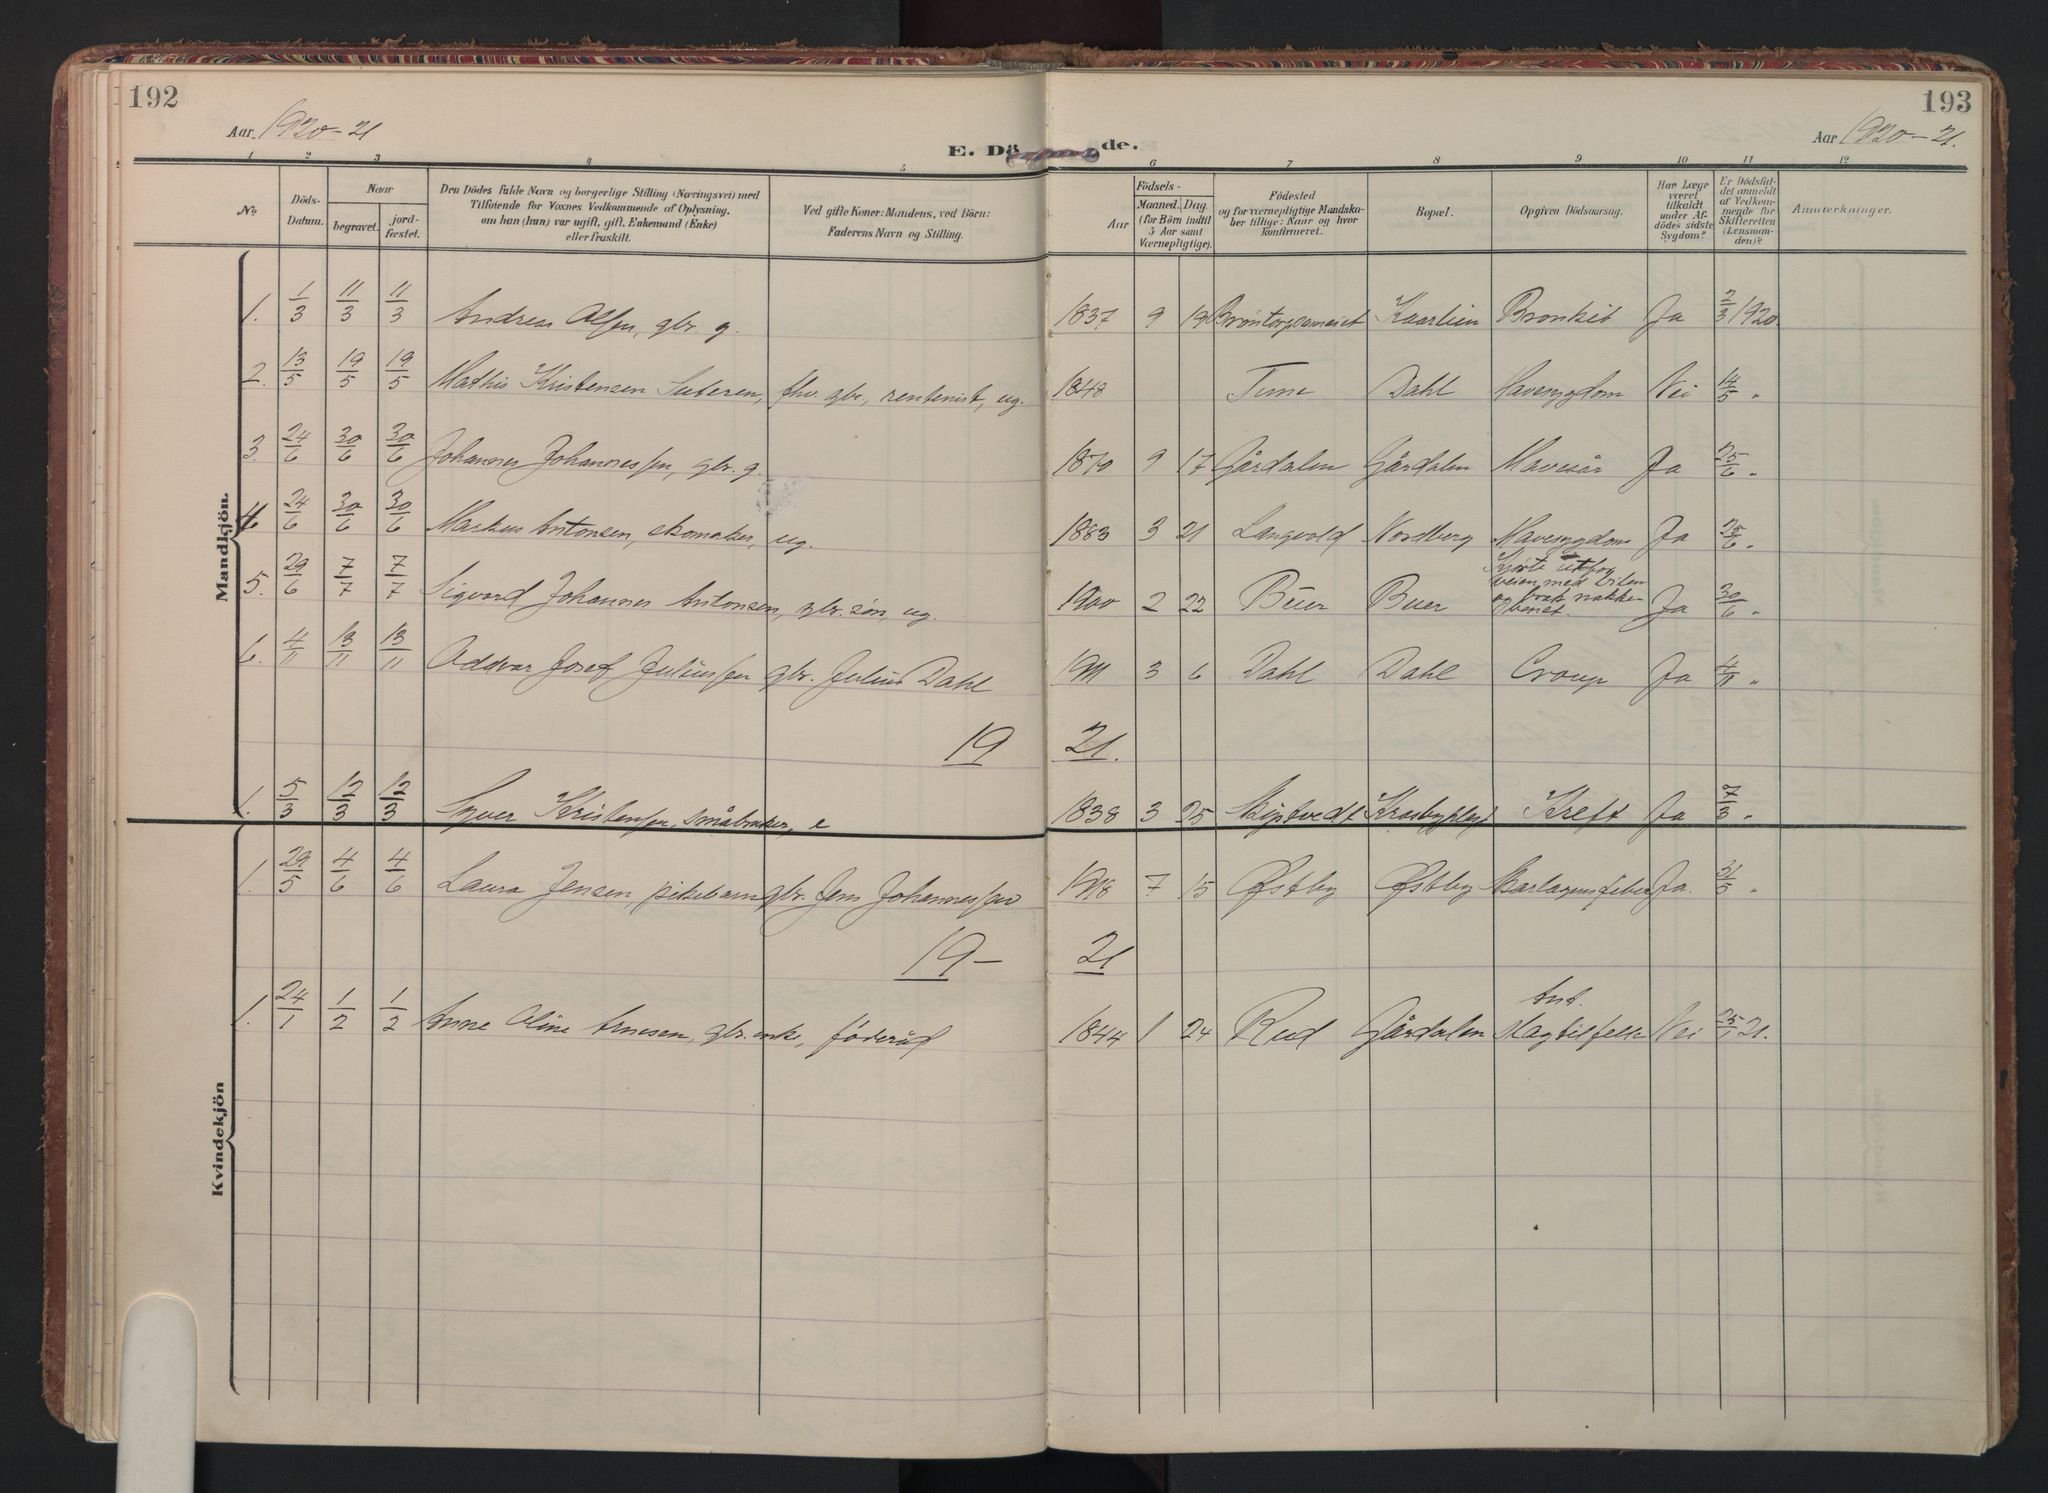 192
193
Aar 1920-21
Aar 1920-21.
E. Dö de.
1 2 3 4 5 6 7 8 9 10 11 12
No. Döds-Datum. Naar begravet. jord-fæstet.
Den Dödes fulde Navn og borgerlige Stilling (Næringsvei) med
Tilföiende for Voxnes Vedkommende af Oplysning,
om han (hun) var ugift, gift, Enkemand (Enke)
eller fraskilt.
Ved gifte Koner: Mandens, ved Börn:
Faderens Navn og Stilling.
Födsels-
Aar Maaned. Dag.
(for Börn indtil
5 Aar samt
Værnepligtige).
Födested
og for værnepligtige Mandska-
ber tillige: Naar og hvor
konfirmeret.
Bopæl.
Opgiven Dödsaarsag.
Har Læge
været
tilkaldt
under Af-
dödes sidste
Sygdom?
Er Dödsfal-
det anmeldt
af Vedkom-
mende for
Skifteretten
(Lensman-
den)?
Anmerkninger.
Mandkjön.
1. 1/3 11/3 11/3 Andreas Olsen, gbr. g. 1837 9 19 Kaarlien Bronkit Ja 2/3 1920.
2. 13/5 19/5 19/5 Mathis Kristensen fhv. gbr., rentenist, ug. 1848 Tune Dahl Mavesygdom Nei 14/5 "
3. 24/6 30/6 30/6 Johannes Johannessen, gbr. g. 1870 9 17 Gårdalen Gårdalen Mavesår Ja 25/6 "
4. 24/6 30/6 30/6 Markus Antonsen, skomaker, ug. 1883 3 21 Langvold Nordberg Mavesygdom Ja 25/6 "
5. 29/6 7/7 7/7 Sigvard Johannes Antonsen, gbr. søn, ug. 1900 2 22 Buer Buer Kjørte utfor
veien med bilen
og brak nakke-
benet. Ja 30/6 "
6. 4/11 13/11 13/11 Oddvar Josef Juliussen gbr. Julius Dahl 1911 3 6 Dahl Dahl Croup Ja 4/11 "
19 21.
1. 5/3 12/3 12/3 Syver Kristensen, småbruker, e 1838 3 25 Skiptvedt Kreft Ja 7/3 "
Kvindekjön
1. 29/5 4/6 4/6 Laura Jensen, pikebarn gbr. Jens Johannessen 1918 7 15 Østby Østby Skarlagensfeber Ja. 31/5 "
19- 21
1. 24/1 1/2 1/2 Anne Oline Arnesen, gbr. enke, føderåd 1844 1 24 Rud Gårdalen Ant.
slagtilfelle Nei 25/1 21.